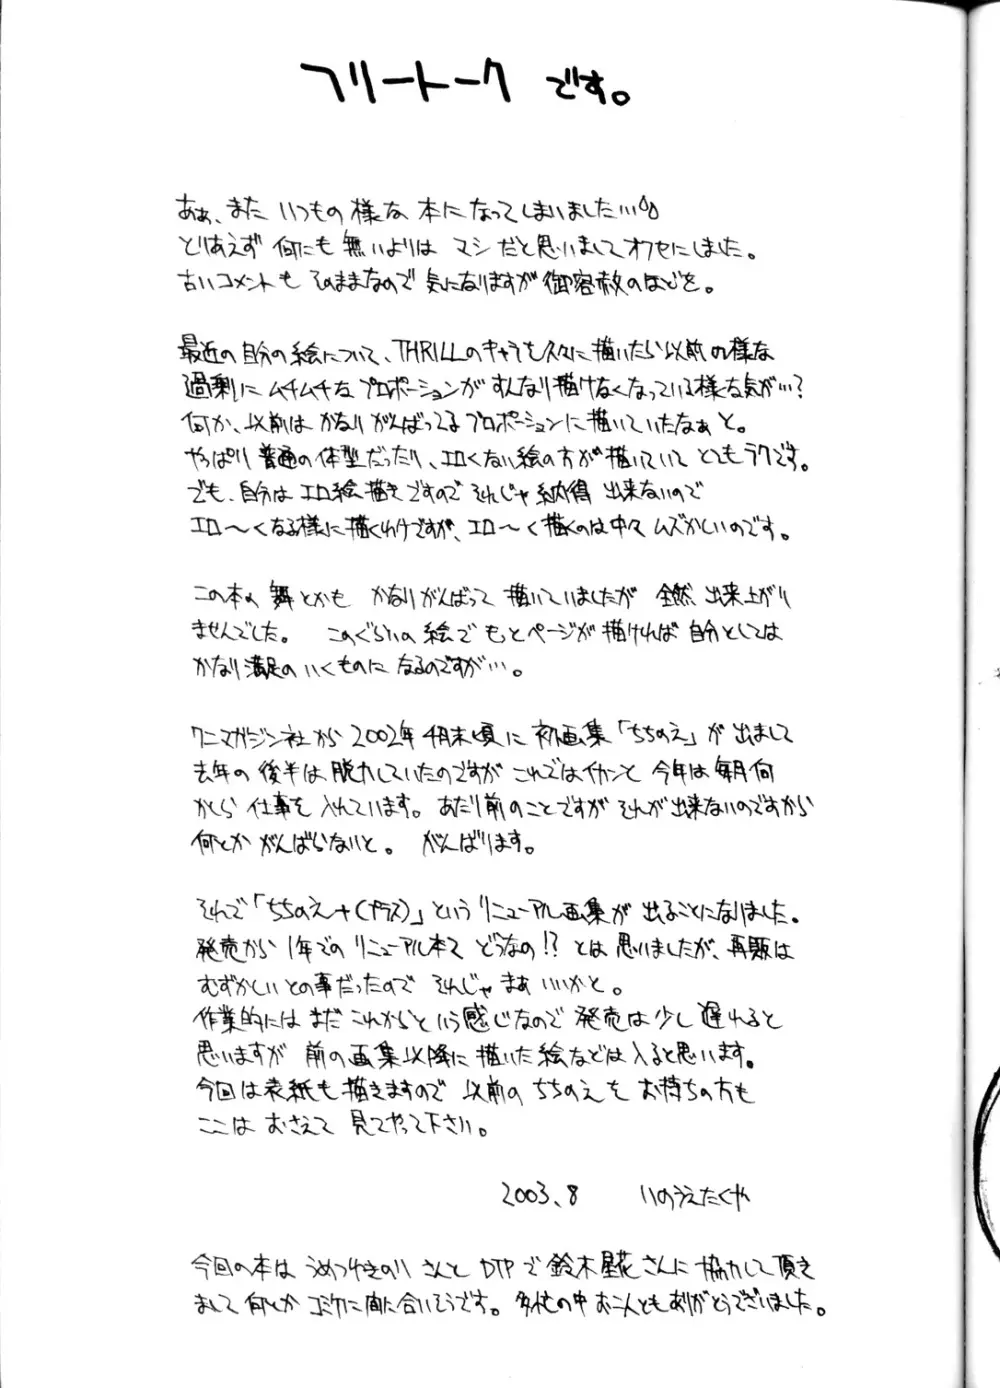 フリートークです。
あぁ、また いつもの 様な 本に なって しまいました…
とりあえず 何にも 無いよりは マシ だと 思いまして オフセにしました。
古いコメントも そのままなので 気になりますが 御容赦のほどを。
最近の 自分の 絵について、THRILLのキャラを 久々に 描いたら 以前の様な
過剰に ムチムチな プロポーションが すんなり 描けなくなっている様な気が…?
何か、以前は かなり がんばってる プロポーションに 描いていたなぁ と。
やっぱり 普通の 体型だったり、エロくない絵の方が 描いていて とてもラクです。
でも、自分は エロ絵描きですので それじゃ 納得 出来ないので
エロ〜くなる様に 描くわけですが、エロ〜く 描くのは中々 ムズかしいのです。
この本の 舞とかも かなりがんばって 描いていましたが 全然 出来上がり
ませんでした。 このぐらいの 絵で もっとページが 描ければ 自分としては
かなり満足の いくものに なるのですが…。
ワニマガジン社から 2002年 4月末頃に 初画集「ちちのえ」が 出まして
去年の 後半は 脱力していたのですが これではイカンと 今年は 毎月 何
かしら 仕事を 入れています。あたり前のことですが それが 出来ないのですから
何とか がんばらないと。 がんばります。
それで「ちちのえ+(プラス)」という リニューアル画集が 出ることになりました。
発売から 1年での リニューアル本て どうなの!? とは 思いましたが、再販は
むずかしい との事だったので それじゃ まぁ いいかと。
作業的には まだ これからという 感じなので 発売は 少し 遅れると
思いますが 前の 画集以降に 描いた 絵などは 入ると思います。
今回は 表紙も 描きますので 以前の ちちのえを お持ちの方も
ここは おさえて 見てやって下さい。
2003.8 いのうえたくや
今回の本は うめつゆきのり さんと DTPで 鈴木星花さんに 協力して 頂き
まして 何とか コミケに 間に合いそうです。多忙の中 お二人とも ありがとうございました。